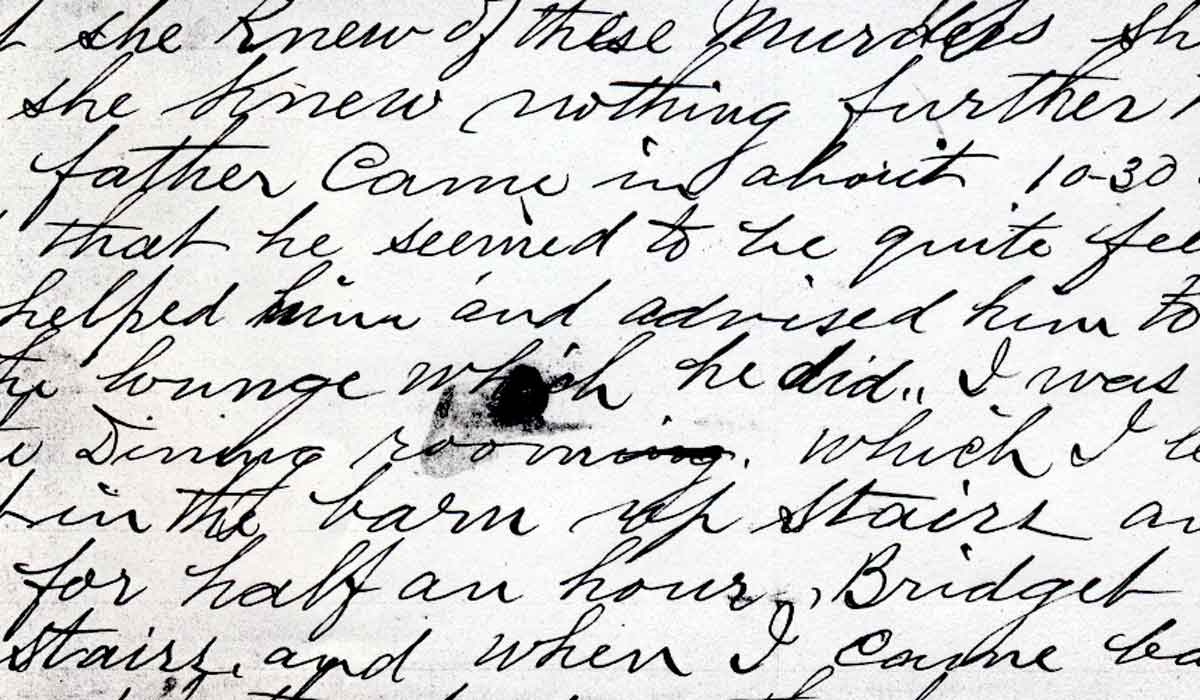 she knew of these Murders
she knew nothing further
father Came in about 10-30
that he seemed to be quite
helped him and advised him to
lounge which he did,, I was
Dining room which I
in the barn up Stairs
for half an hour, Bridget
Stairs, and when I came